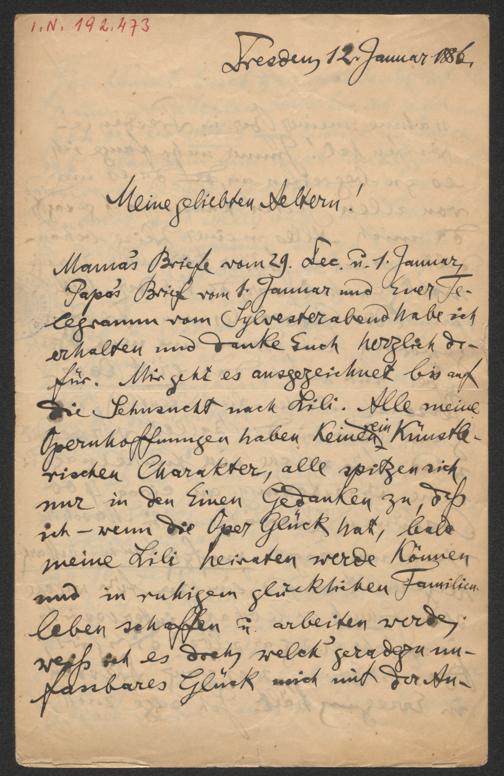 I.N. 192.473
Dresden, 12. Januar 1886.
Meine geliebten Aeltern!
Mama's Briefe vom 29. Dec. u. 1. Januar,
Papa's Brief vom 1. Januar und Euer Te-
legramm vom Sylvesterabend habe ich
erhalten und danke Euch herzlich da-
für. Mir geht es ausgezeichnet bis auf
die Sehnsucht nach Lili. Alle meine
Opernhoffnungen haben keinen rein Künstle-
rischen Charakter, alle spitzen sich
nur in den Einen Gedanken zu, daß
ich – wenn die Oper Glück hat, bald
meine Lili heiraten werde können
und in ruhigem glücklichen Familien-
leben schaffen u. arbeiten werde;
weiß ich es doch, welch' geradezu un-
fassbares Glück mich mit der An-